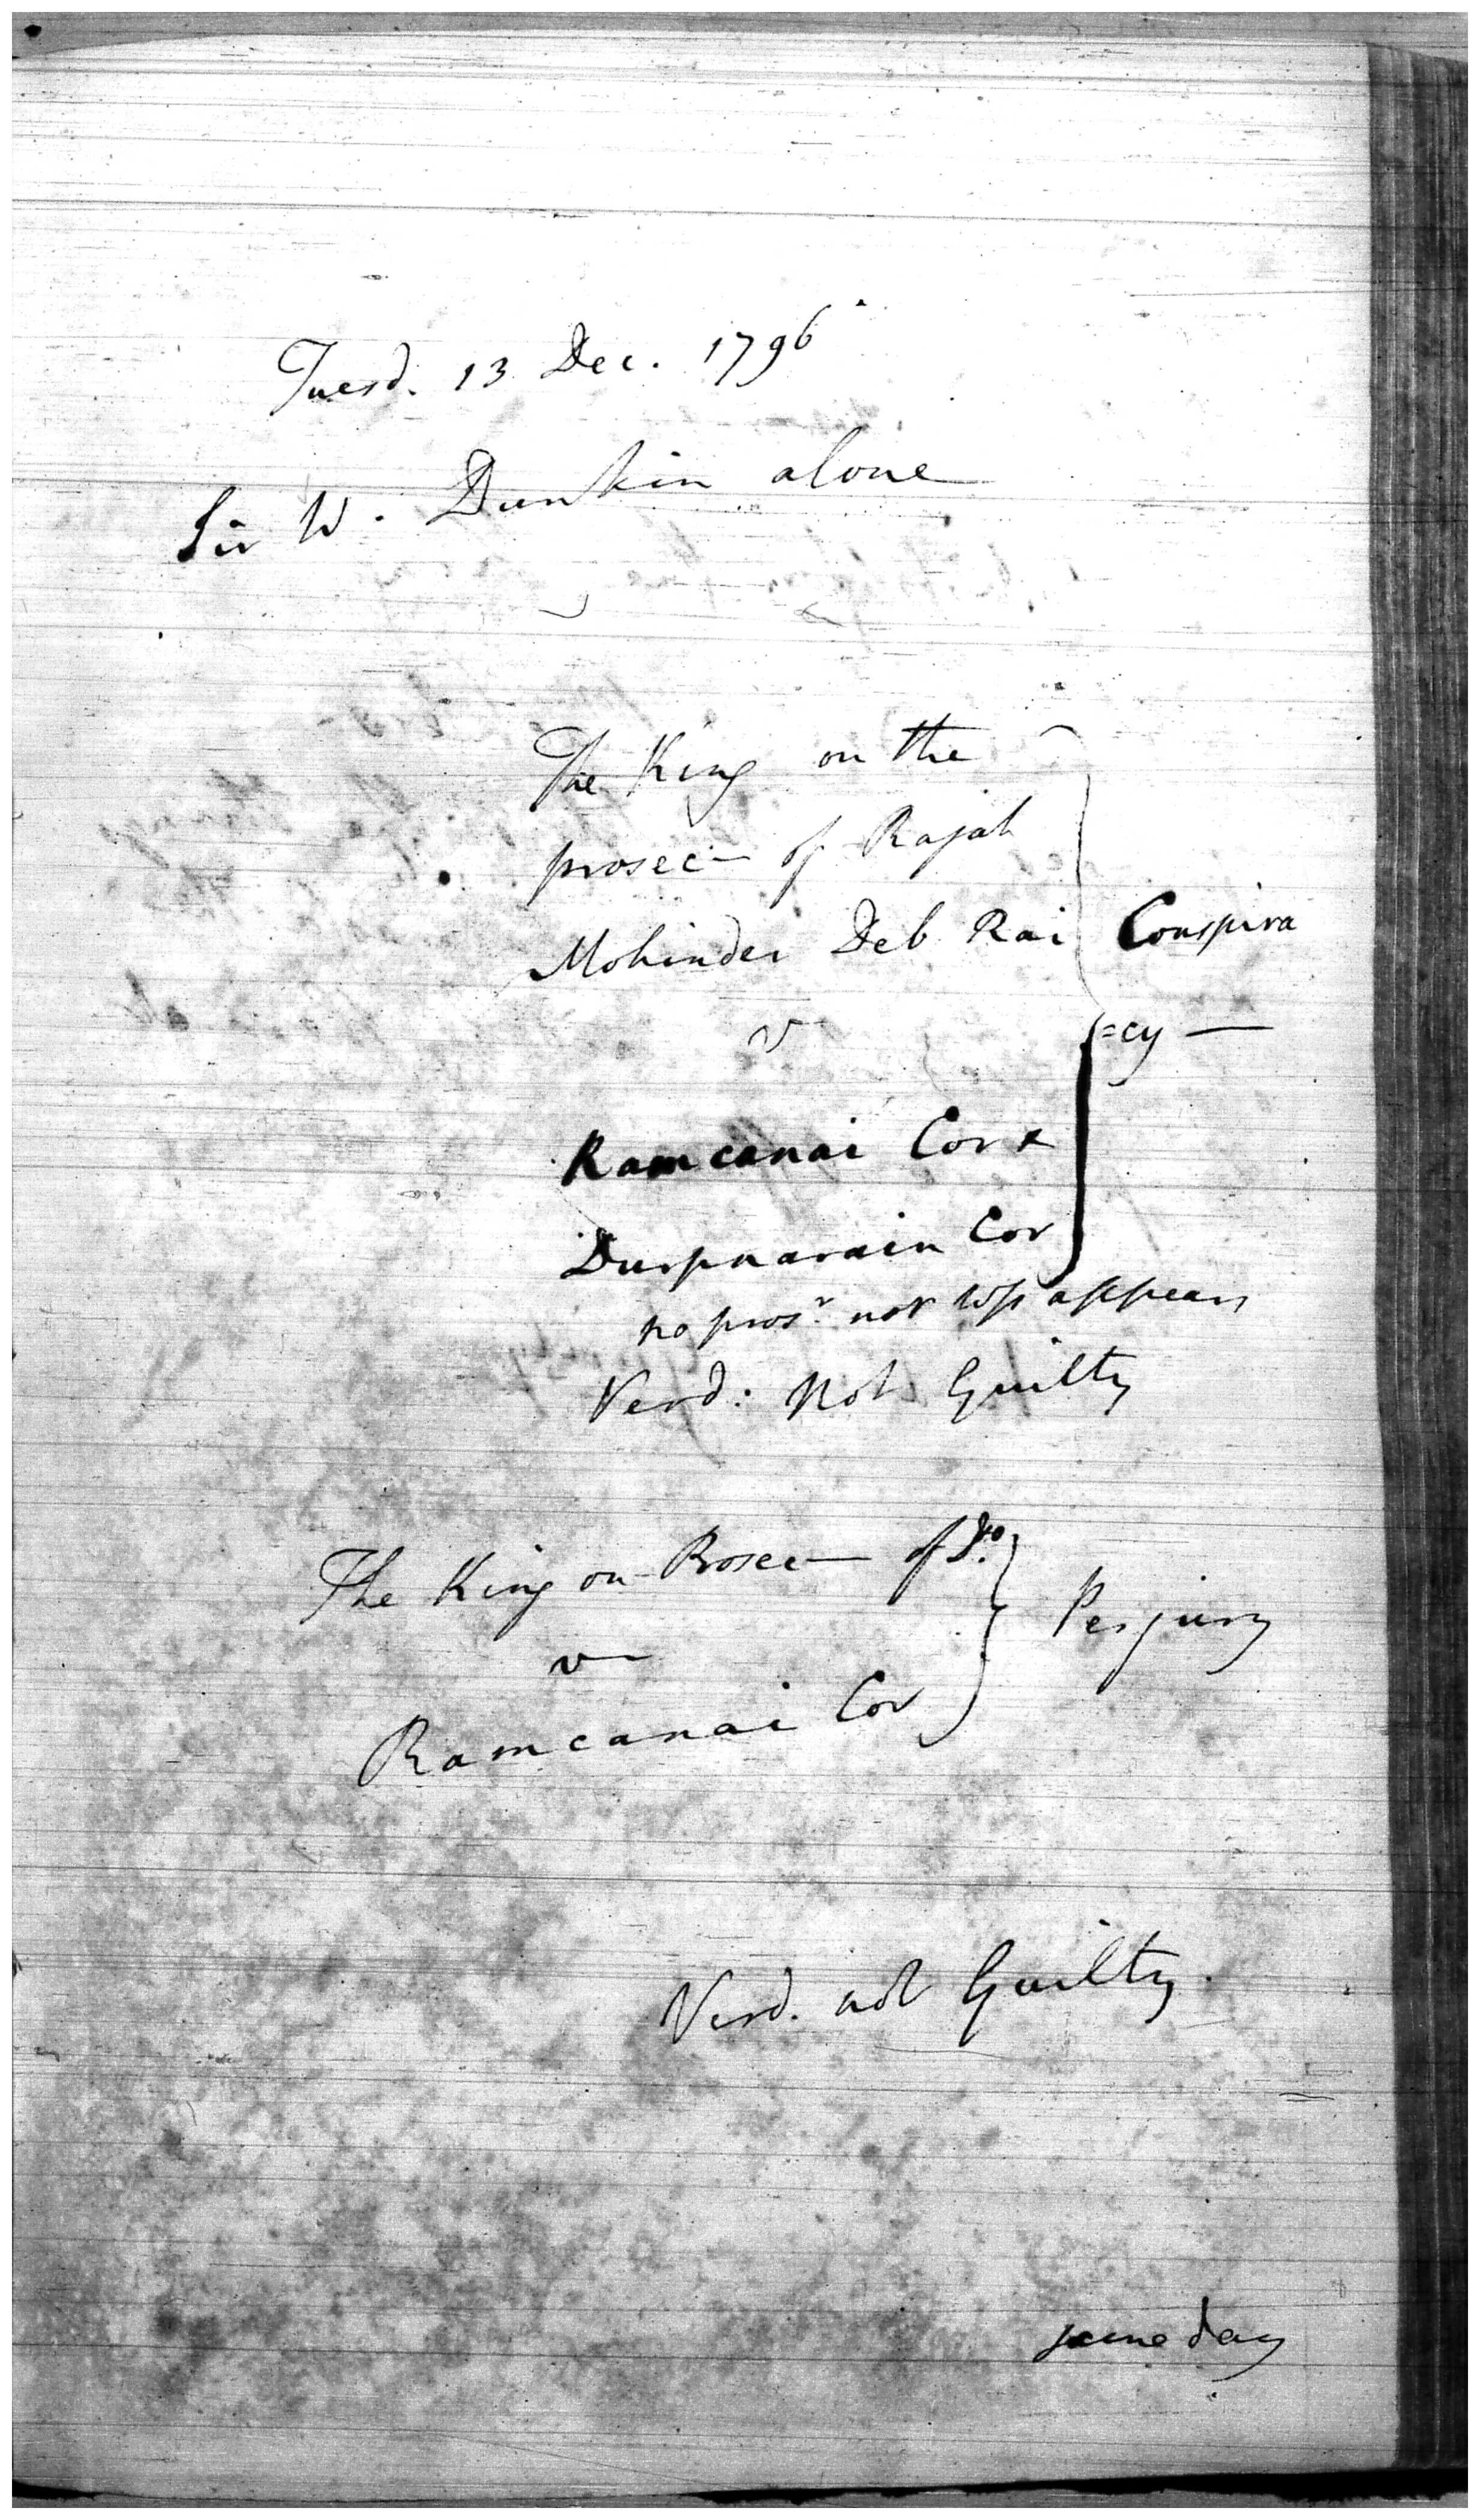 Tuesd. 13 Dec. 1796
Sir W. Dunkin alone
The King on the
prosec— of Rajah
Mohinder Deb Rai Conspira
v =cy —
Ramcanai Cor &
Durpnarain Cor
no pros.r nor wss appears
Verd: Not Guilty
The King on Prosec— of Do.
v— Perjury
Ramcanai Cor
Verd. not Guilty.
same day